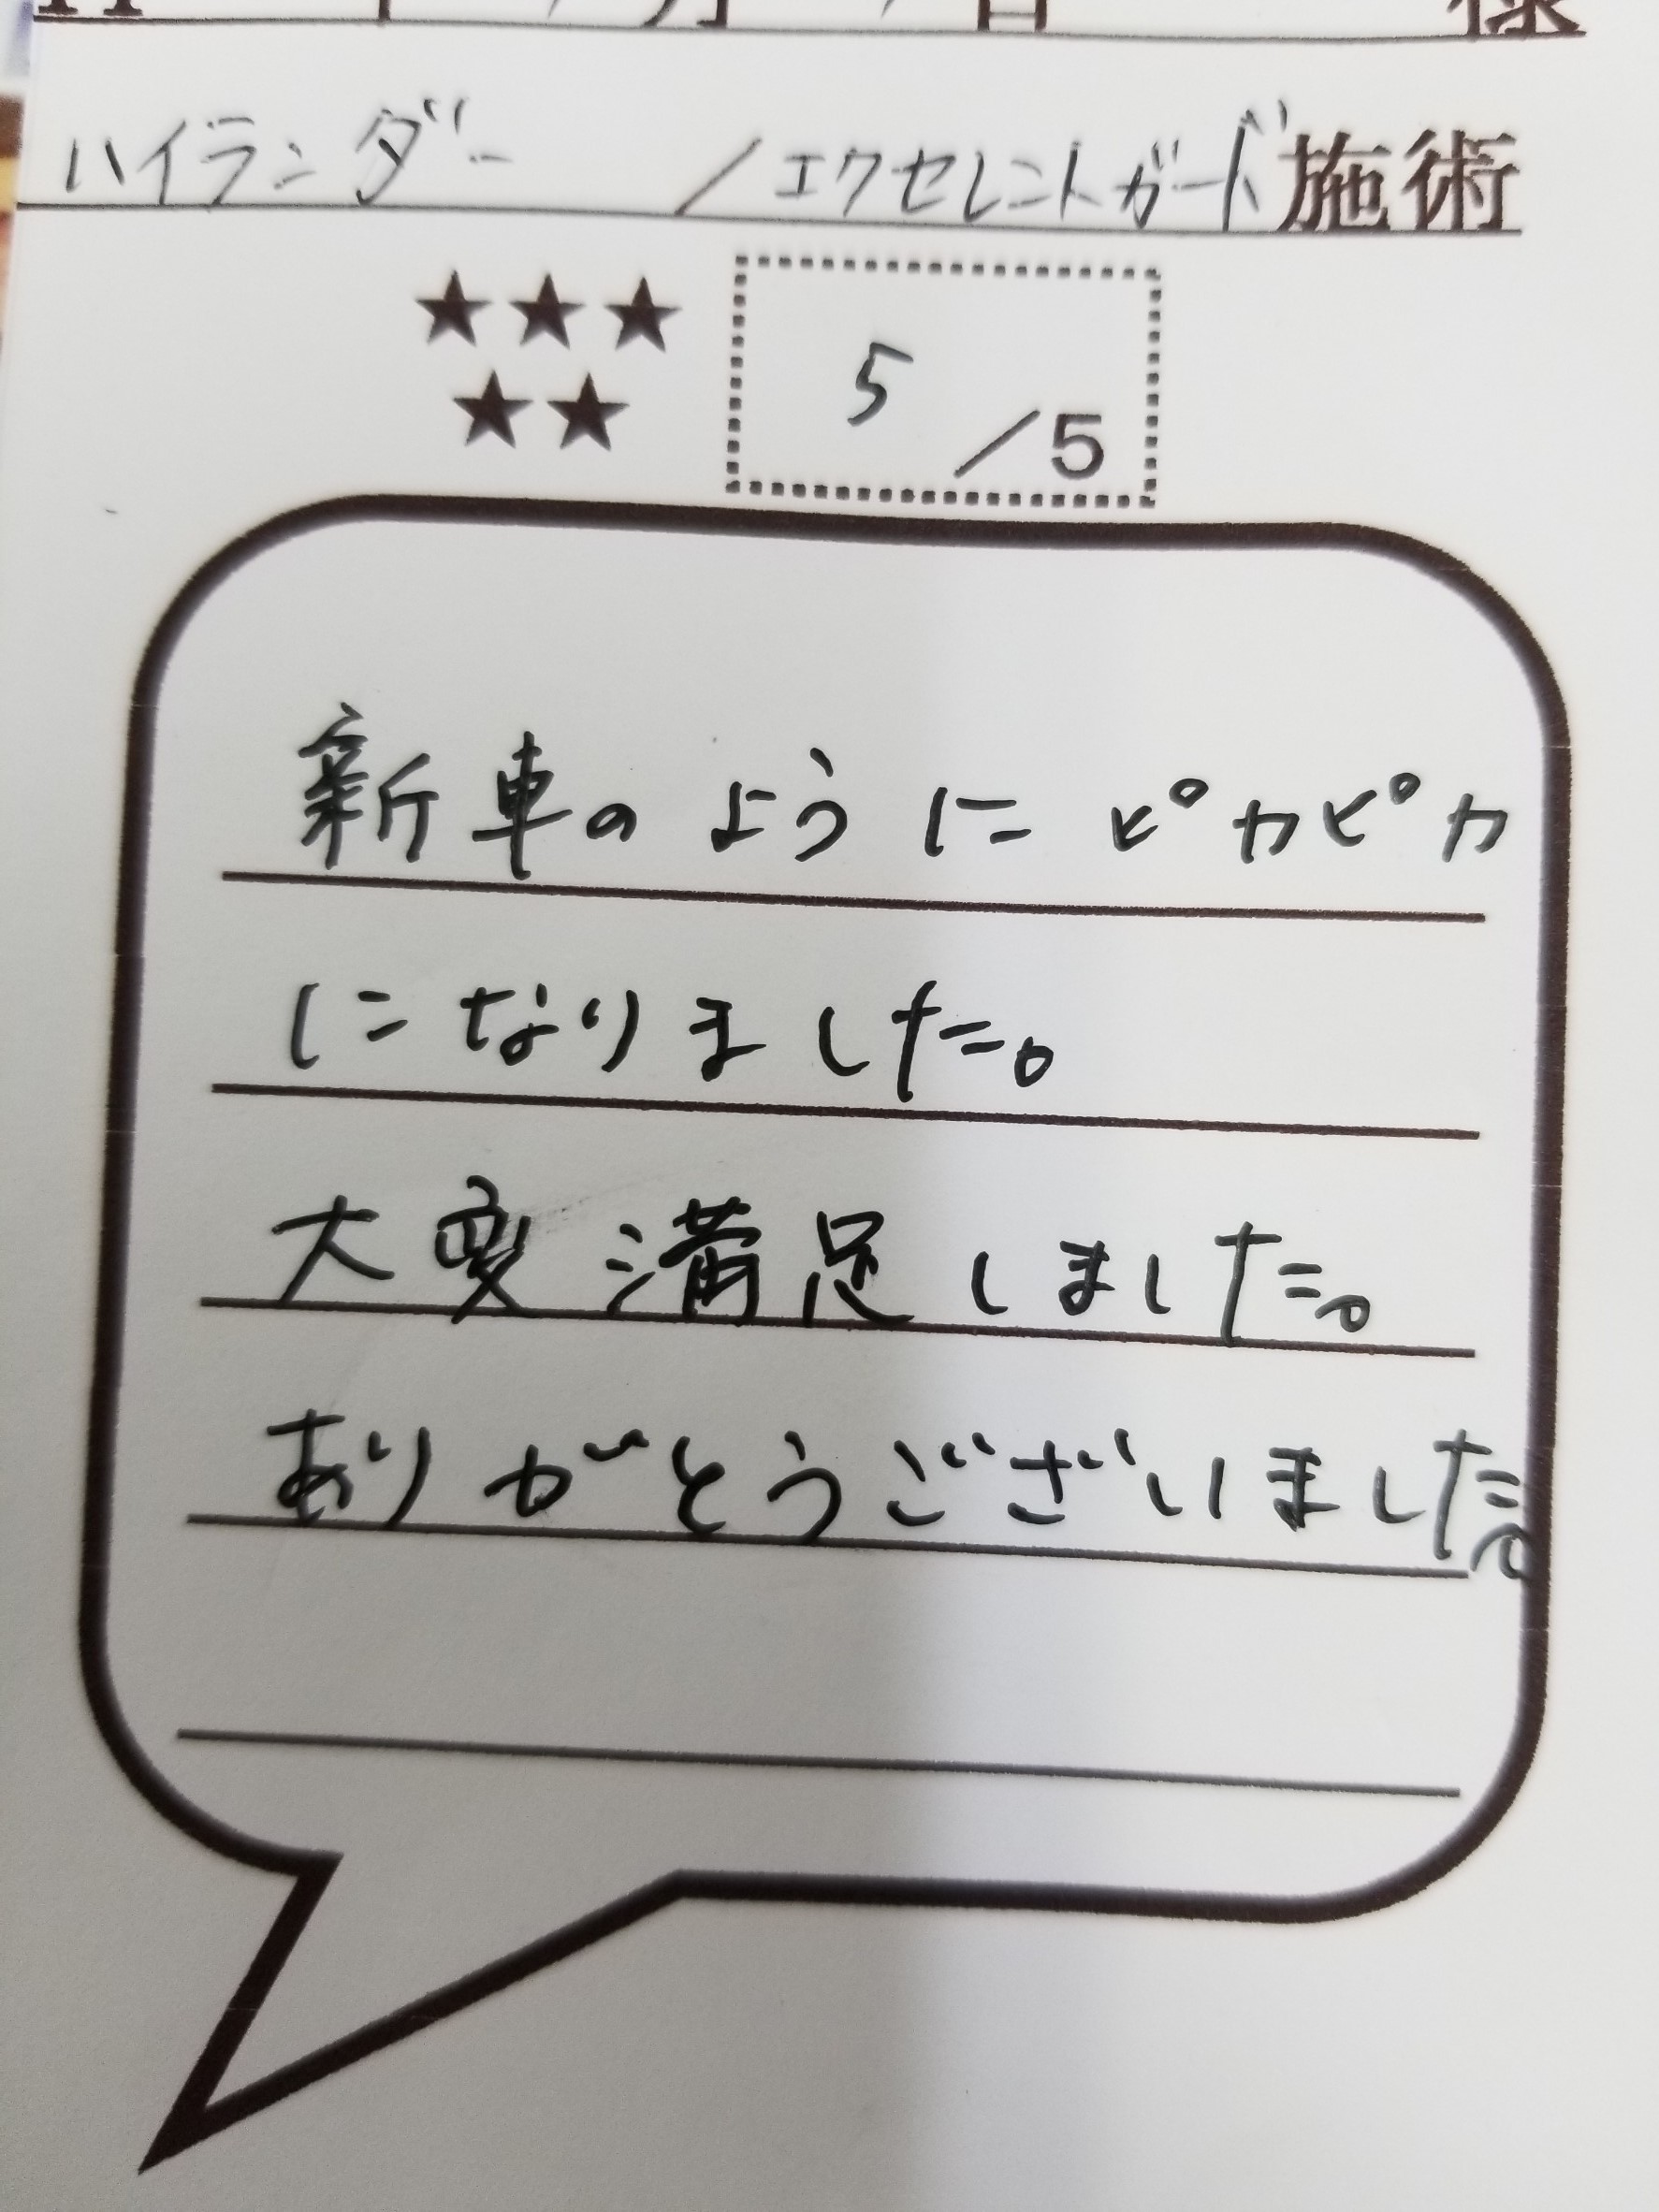 月 日 様
ハイランダー /エクセレントガード施術
★★★
★★
5 /5
新車のようにピカピカ
になりました。
大変満足しました。
ありがとうございました。